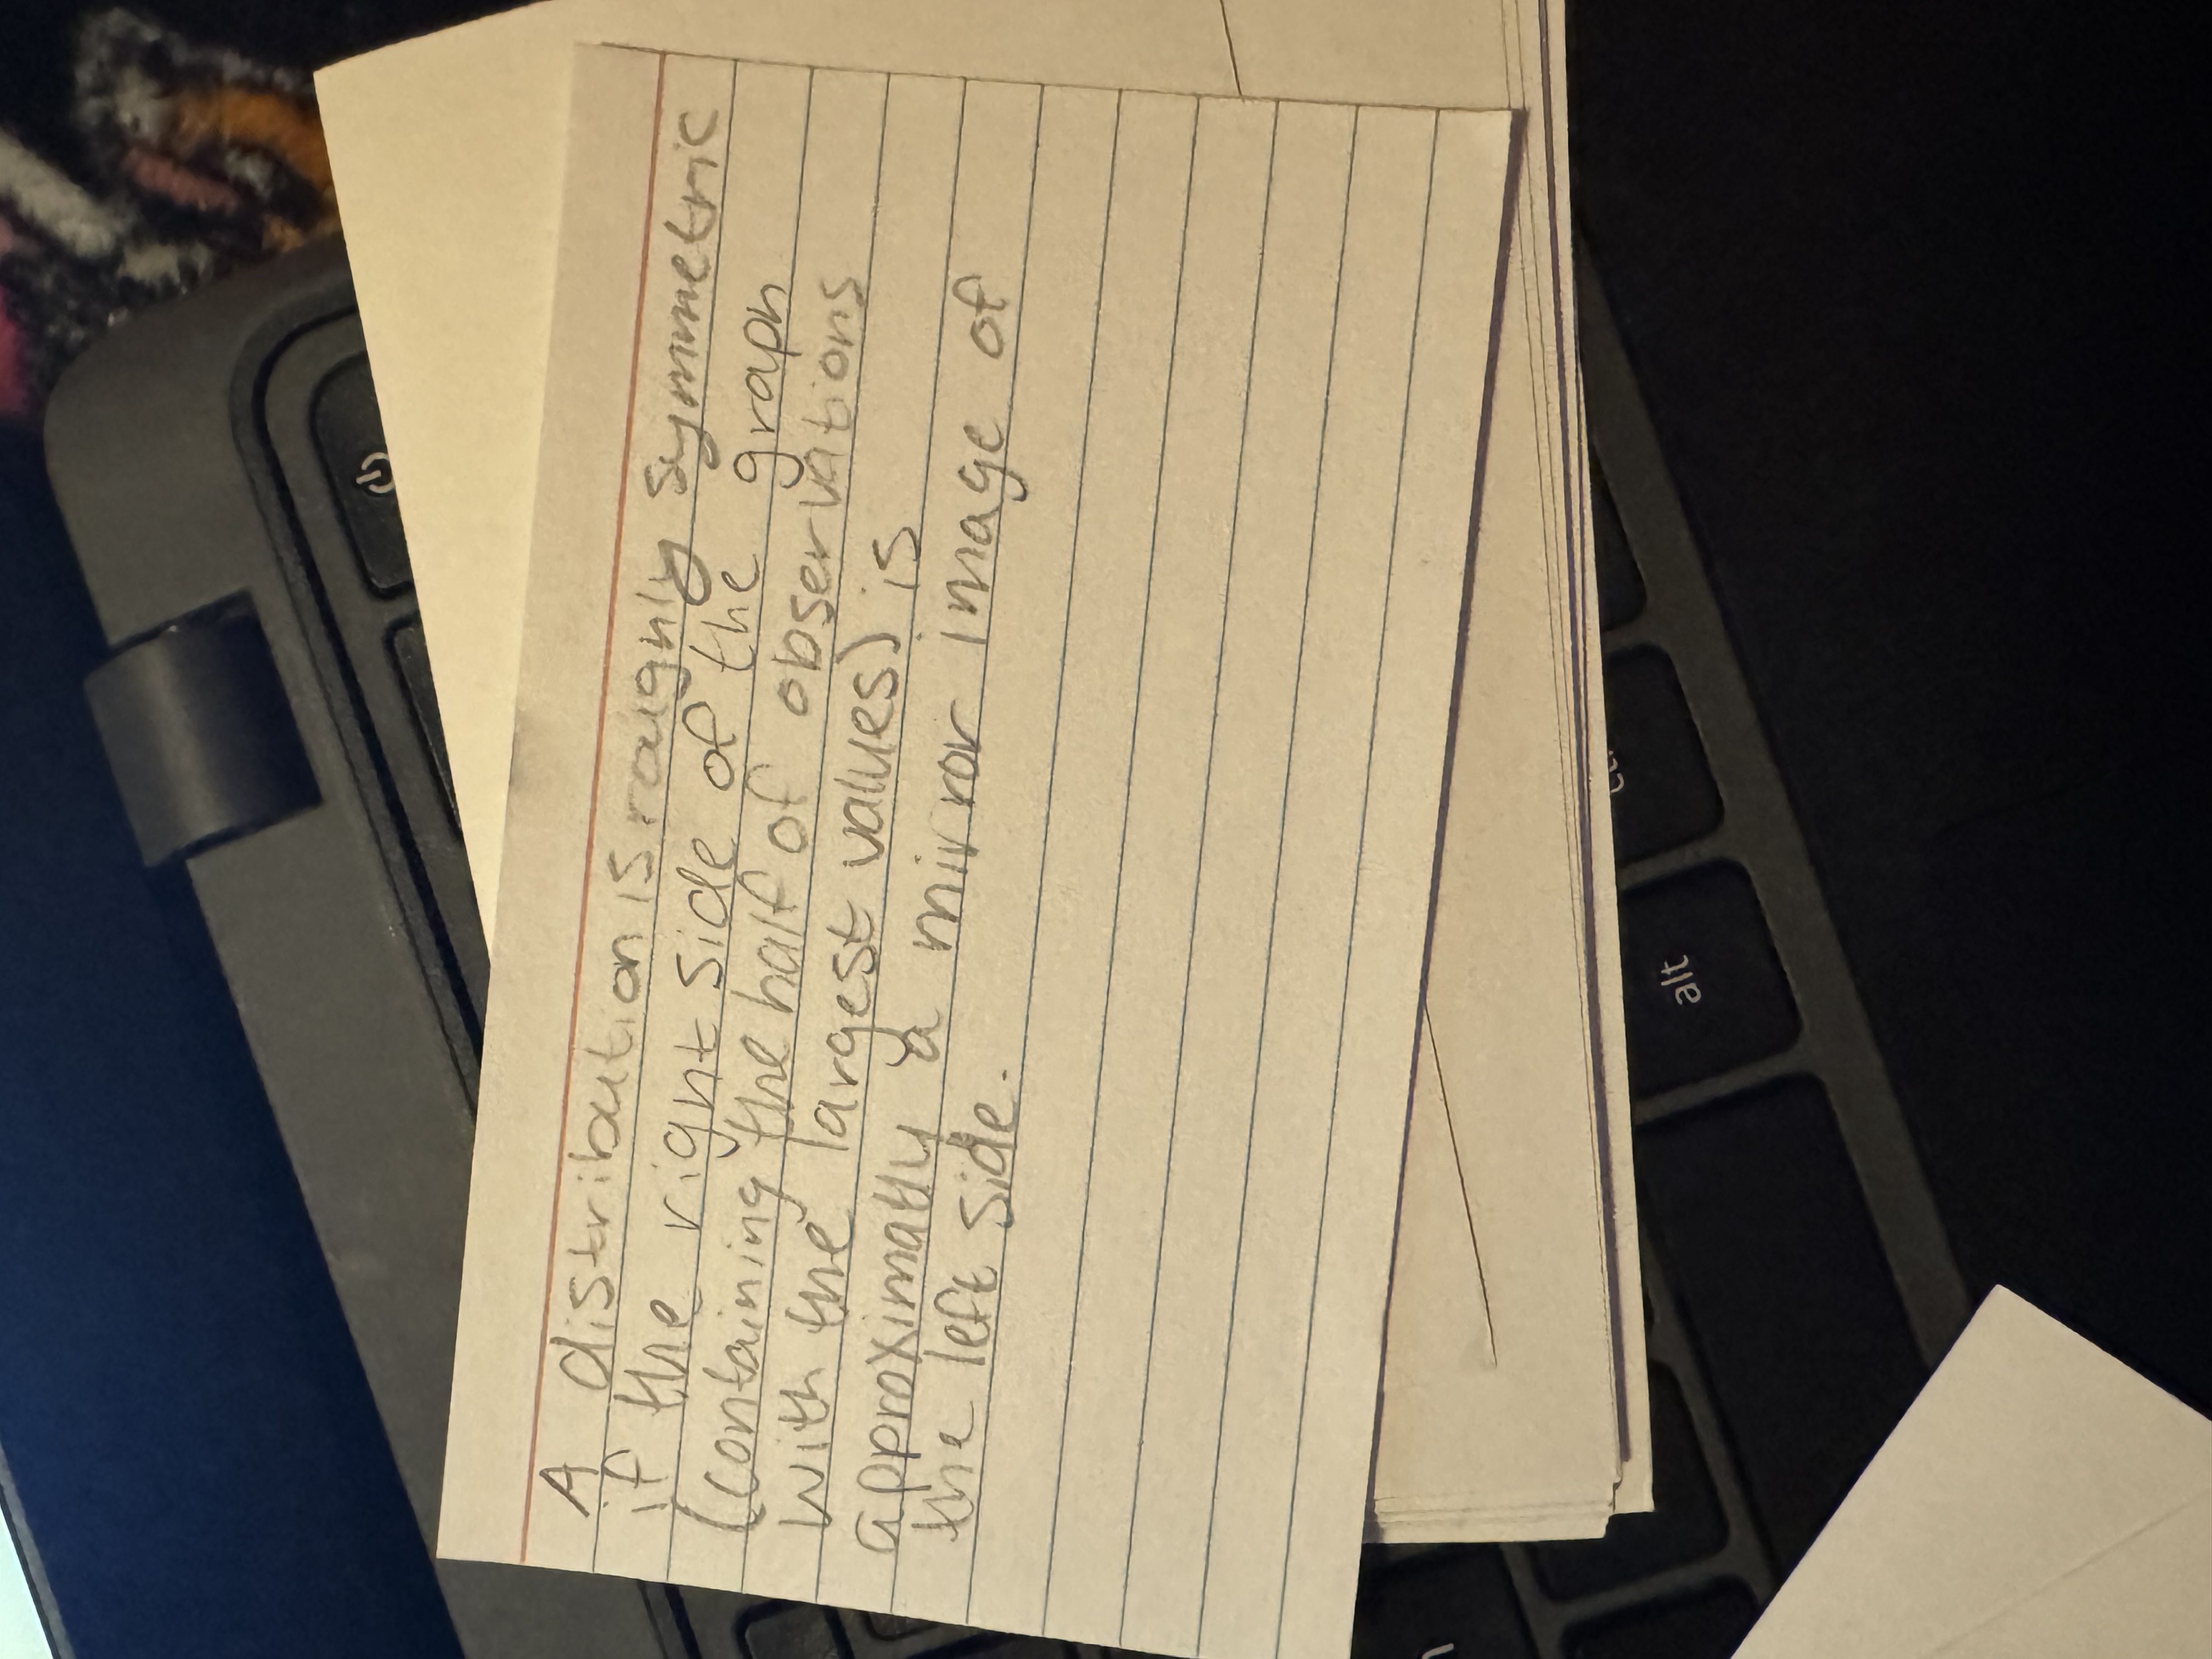 A distribution is roughly symmetric
if the right side of the graph
(containing the half of observations
with the largest values) is
approximatly a mirror image of
the left side.
alt